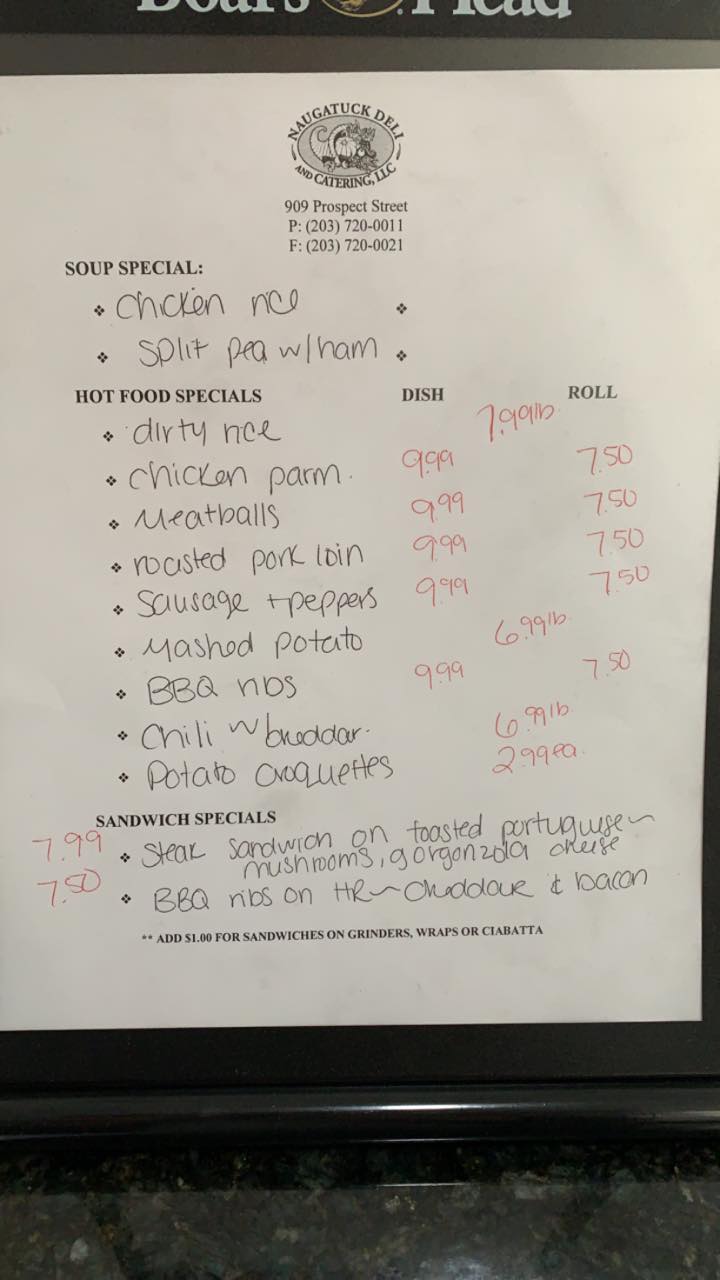 Boar's Head
NAUGATUCK DELI
AND CATERING, LLC
909 Prospect Street
P: (203) 720-0011
F: (203) 720-0021
SOUP SPECIAL:
❖ Chicken rice ❖
❖ Split pea w/ham ❖
HOT FOOD SPECIALS DISH ROLL
❖ dirty rice 7.99lb
❖ Chicken parm. 9.99 7.50
❖ Meatballs 9.99 7.50
❖ roasted pork loin 9.99 7.50
❖ Sausage + peppers 9.99 7.50
❖ Mashed potato 6.99lb
❖ BBQ ribs 9.99 7.50
❖ Chili w/cheddar. 6.99lb
❖ Potato croquettes 2.99ea.
SANDWICH SPECIALS
7.99 ❖ Steak sandwich on toasted portuguese~
mushrooms, gorgonzola cheese
7.50 ❖ BBQ ribs on HR~Cheddar & bacon
** ADD $1.00 FOR SANDWICHES ON GRINDERS, WRAPS OR CIABATTA